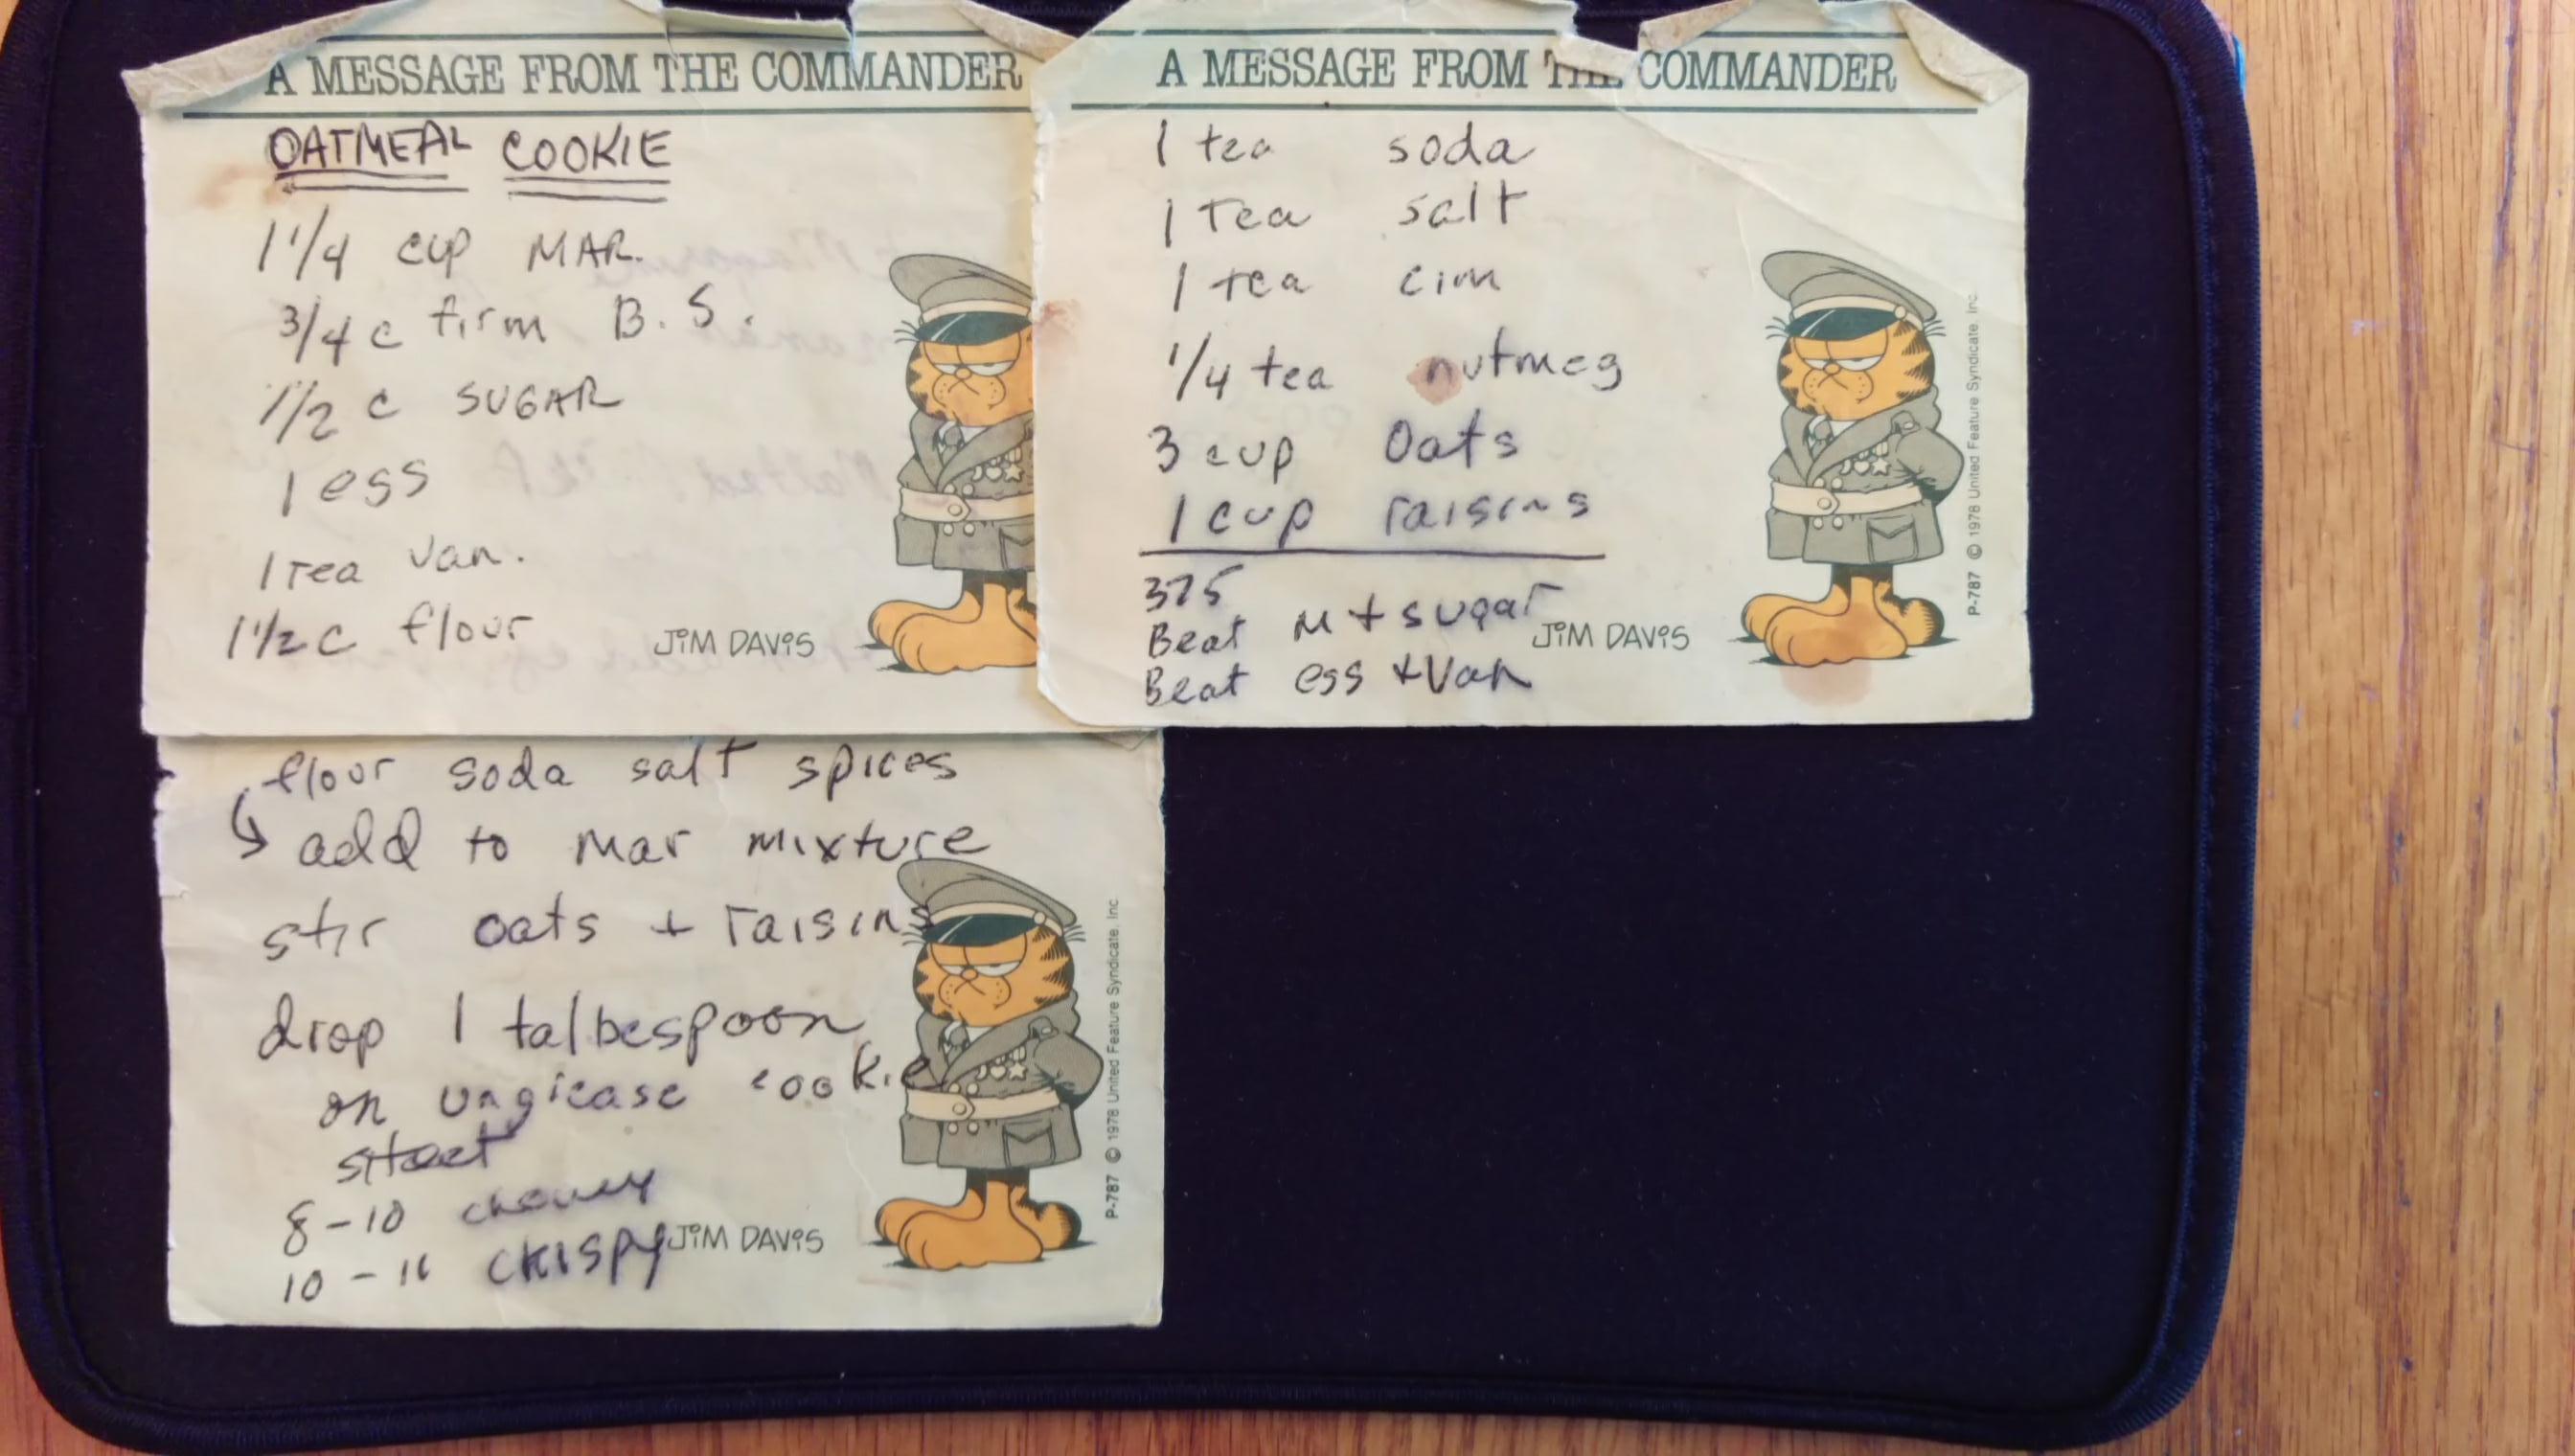 A MESSAGE FROM THE COMMANDER
OATMEAL COOKIE
1 1/4 cup MAR.
3/4 c firm B.S.
1/2 c SUGAR
1 egg
1 tea van.
1 1/2 c flour
JIM DAVIS
A MESSAGE FROM THE COMMANDER
1 tea soda
1 Tea salt
1 tea cim
1/4 tea nutmeg
3 cup Oats
1 cup raisins
375
Beat M + sugar
Beat egg + Van
JIM DAVIS
P-787 © 1978 United Feature Syndicate, Inc.
flour soda salt spices
add to Mar mixture
stir oats + raisins
drop 1 talbespoon
on ungrease cookie
sheet
8-10 chewy
10-11 CRISPY
JIM DAVIS
P-787 © 1978 United Feature Syndicate, Inc